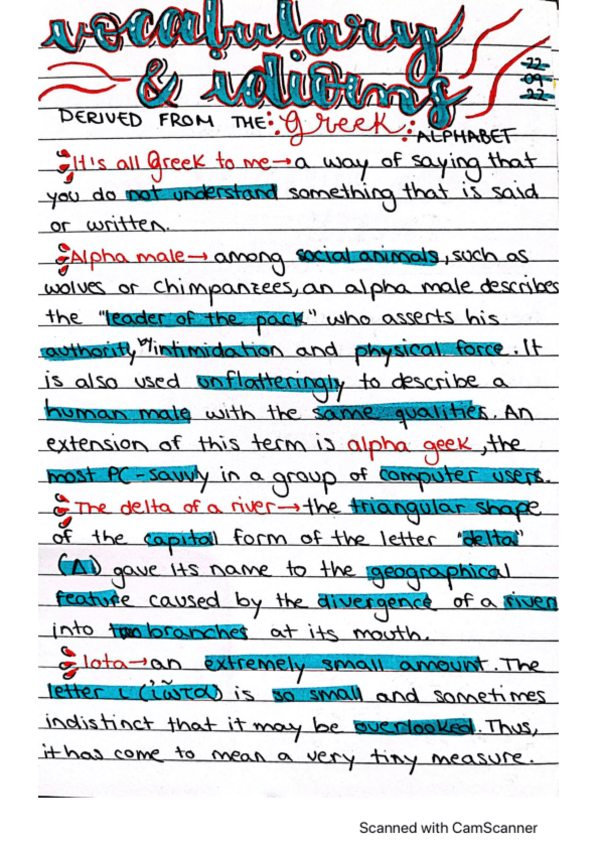 vocabulary
& idioms
22
09
22
DERIVED FROM THE :Greek: ALPHABET
It's all Greek to me→a way of saying that
you do not understand something that is said
or written.
Alpha male→ among social animals, such as
wolves or chimpanzees, an alpha male describes
the "leader of the pack" who asserts his
authority by intimidation and physical force. It
is also used unflatteringly to describe a
human male with the same qualities. An
extension of this term is alpha geek, the
most PC-savvy in a group of computer users.
The delta of a river→the triangular shape
of the capital form of the letter "delta"
(Δ) gave its name to the geographical
feature caused by the divergence of a river
into two branches at its mouth.
Iota→an extremely small amount. The
letter ι (ἰῶτα) is so small and sometimes
indistinct that it may be overlooked. Thus,
it has come to mean a very tiny measure.
Scanned with CamScanner